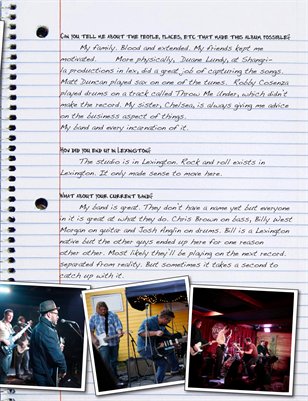 CAN YOU TELL ME ABOUT THE PEOPLE, PLACES, ETC THAT MADE THIS ALBUM POSSIBLE?
My family. Blood and extended. My friends kept me
motivated. More physically, Duane Lundy, at Shangri-
la productions in lex, did a great job of capturing the songs.
Matt Duncan played sax on one of the tunes. Robby Cosenza
played drums on a track called Throw Me Under, which didn't
make the record. My sister, Chelsea, is always giving me advice
on the business aspect of things.
My band and every incarnation of it.
HOW DID YOU END UP IN LEXINGTON?
The studio is in Lexington. Rock and roll exists in
Lexington. It only made sense to move here.
WHAT ABOUT YOUR CURRENT BAND?
My band is great. They don't have a name yet but everyone
in it is great at what they do. Chris Brown on bass, Billy West
Morgan on guitar and Josh Anglin on drums. Bill is a Lexington
native but the other guys ended up here for one reason
other other. Most likely they'll be playing on the next record.
separated from reality. But sometimes it takes a second to
catch up with it.